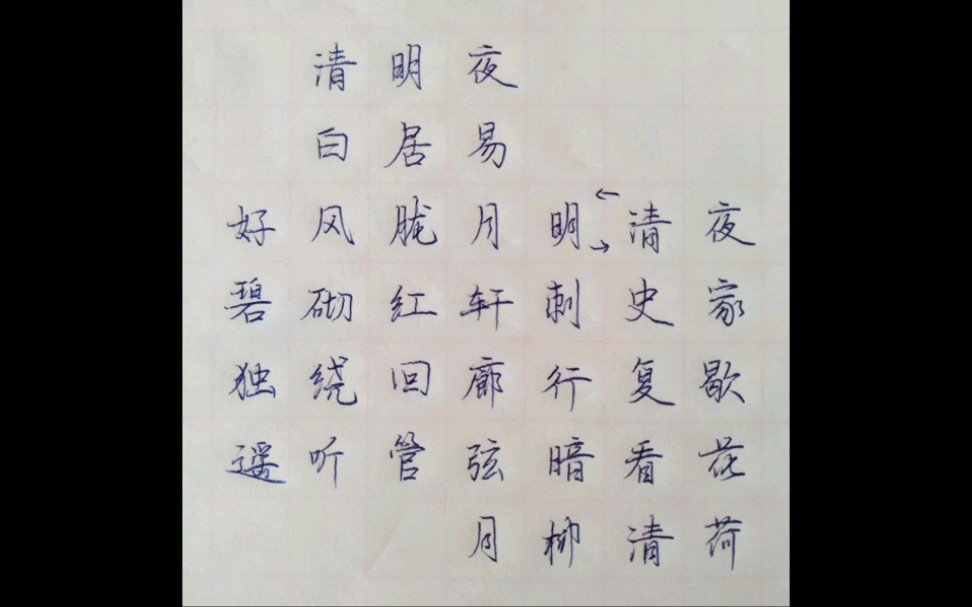 清明夜
白居易
好风胧月明清夜
碧砌红轩刺史家
独绕回廊行复歇
遥听管弦暗看花
月柳清荷